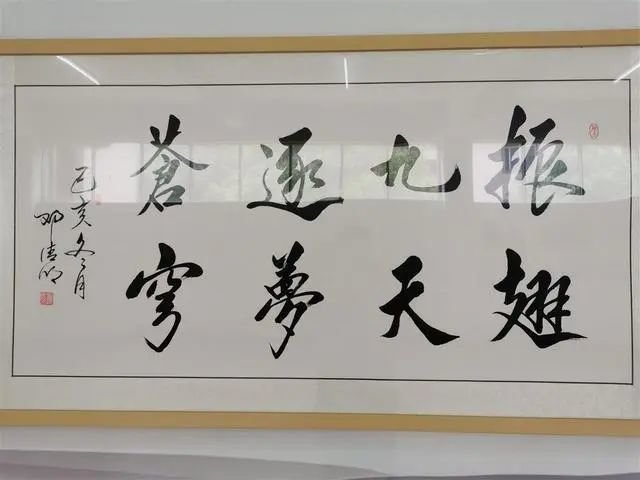 振翅
九天
逐夢
蒼穹
己亥冬月
邓清明